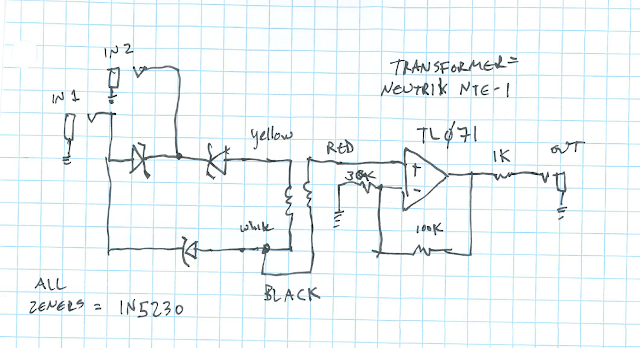 IN 2
TRANSFORMER =
NEUTRIK NTE-1
IN 1
TLØ71
yellow
RED
1K
OUT
+
-
100K
white
BLACK
ALL
ZENERS = 1N5230